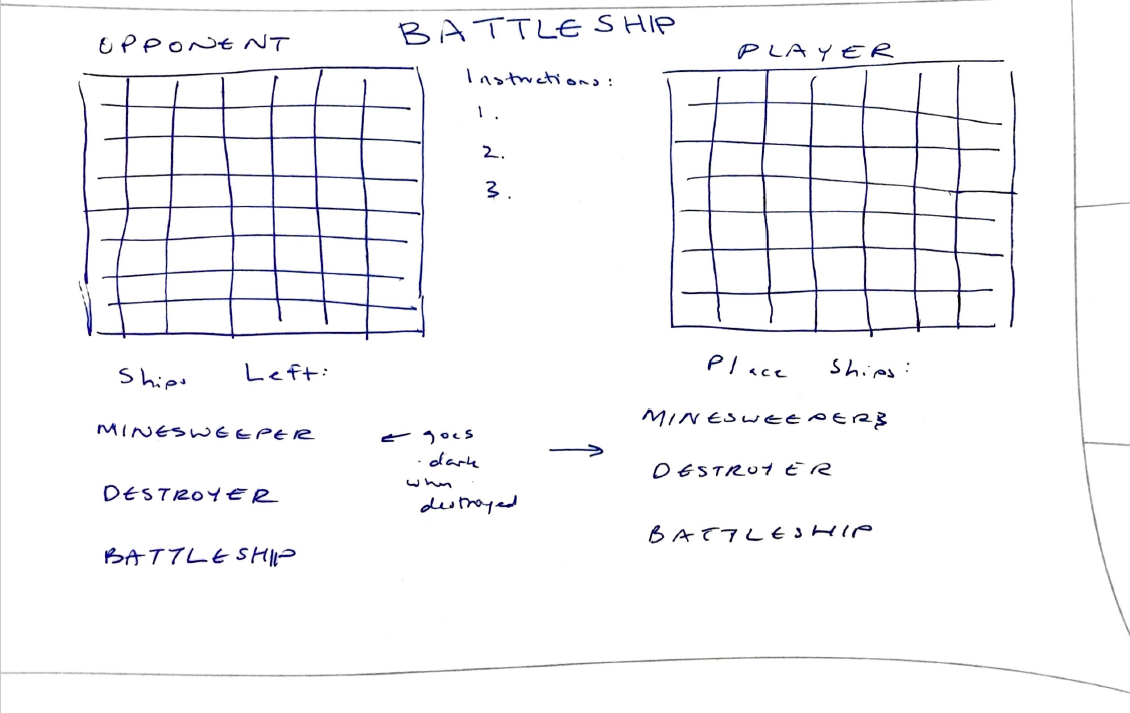 BATTLESHIP
OPPONENT
PLAYER
Instructions:
1.
2.
3.
Ships Left:
MINESWEEPER
DESTROYER
BATTLESHIP
← goes
dark
when
destroyed
→
Place Ships:
MINESWEEPER
DESTROYER
BATTLESHIP